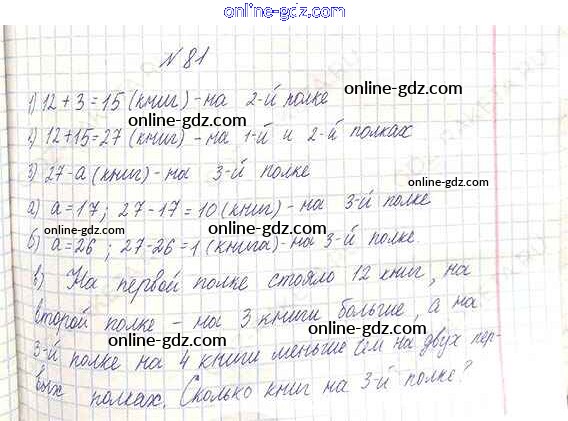 online-gdz.com
№ 81
1) 12 + 3 = 15 (книг) - на 2-й полке
online-gdz.com
2) 12 + 15 = 27 (книг) - на 1-й и 2-й полках
online-gdz.com
3) 27 - а (книг) - на 3-й полке
online-gdz.com
а) а = 17; 27 - 17 = 10 (книг) - на 3-й полке
online-gdz.com
б) а = 26; 27 - 26 = 1 (книга) - на 3-й полке.
online-gdz.com
в) На первой полке стояло 12 книг, на
online-gdz.com
второй полке - на 3 книги больше, а на
online-gdz.com
3-й полке на 4 книги меньше чем на двух пер-
вых полках. Сколько книг на 3-й полке?
online-gdz.com